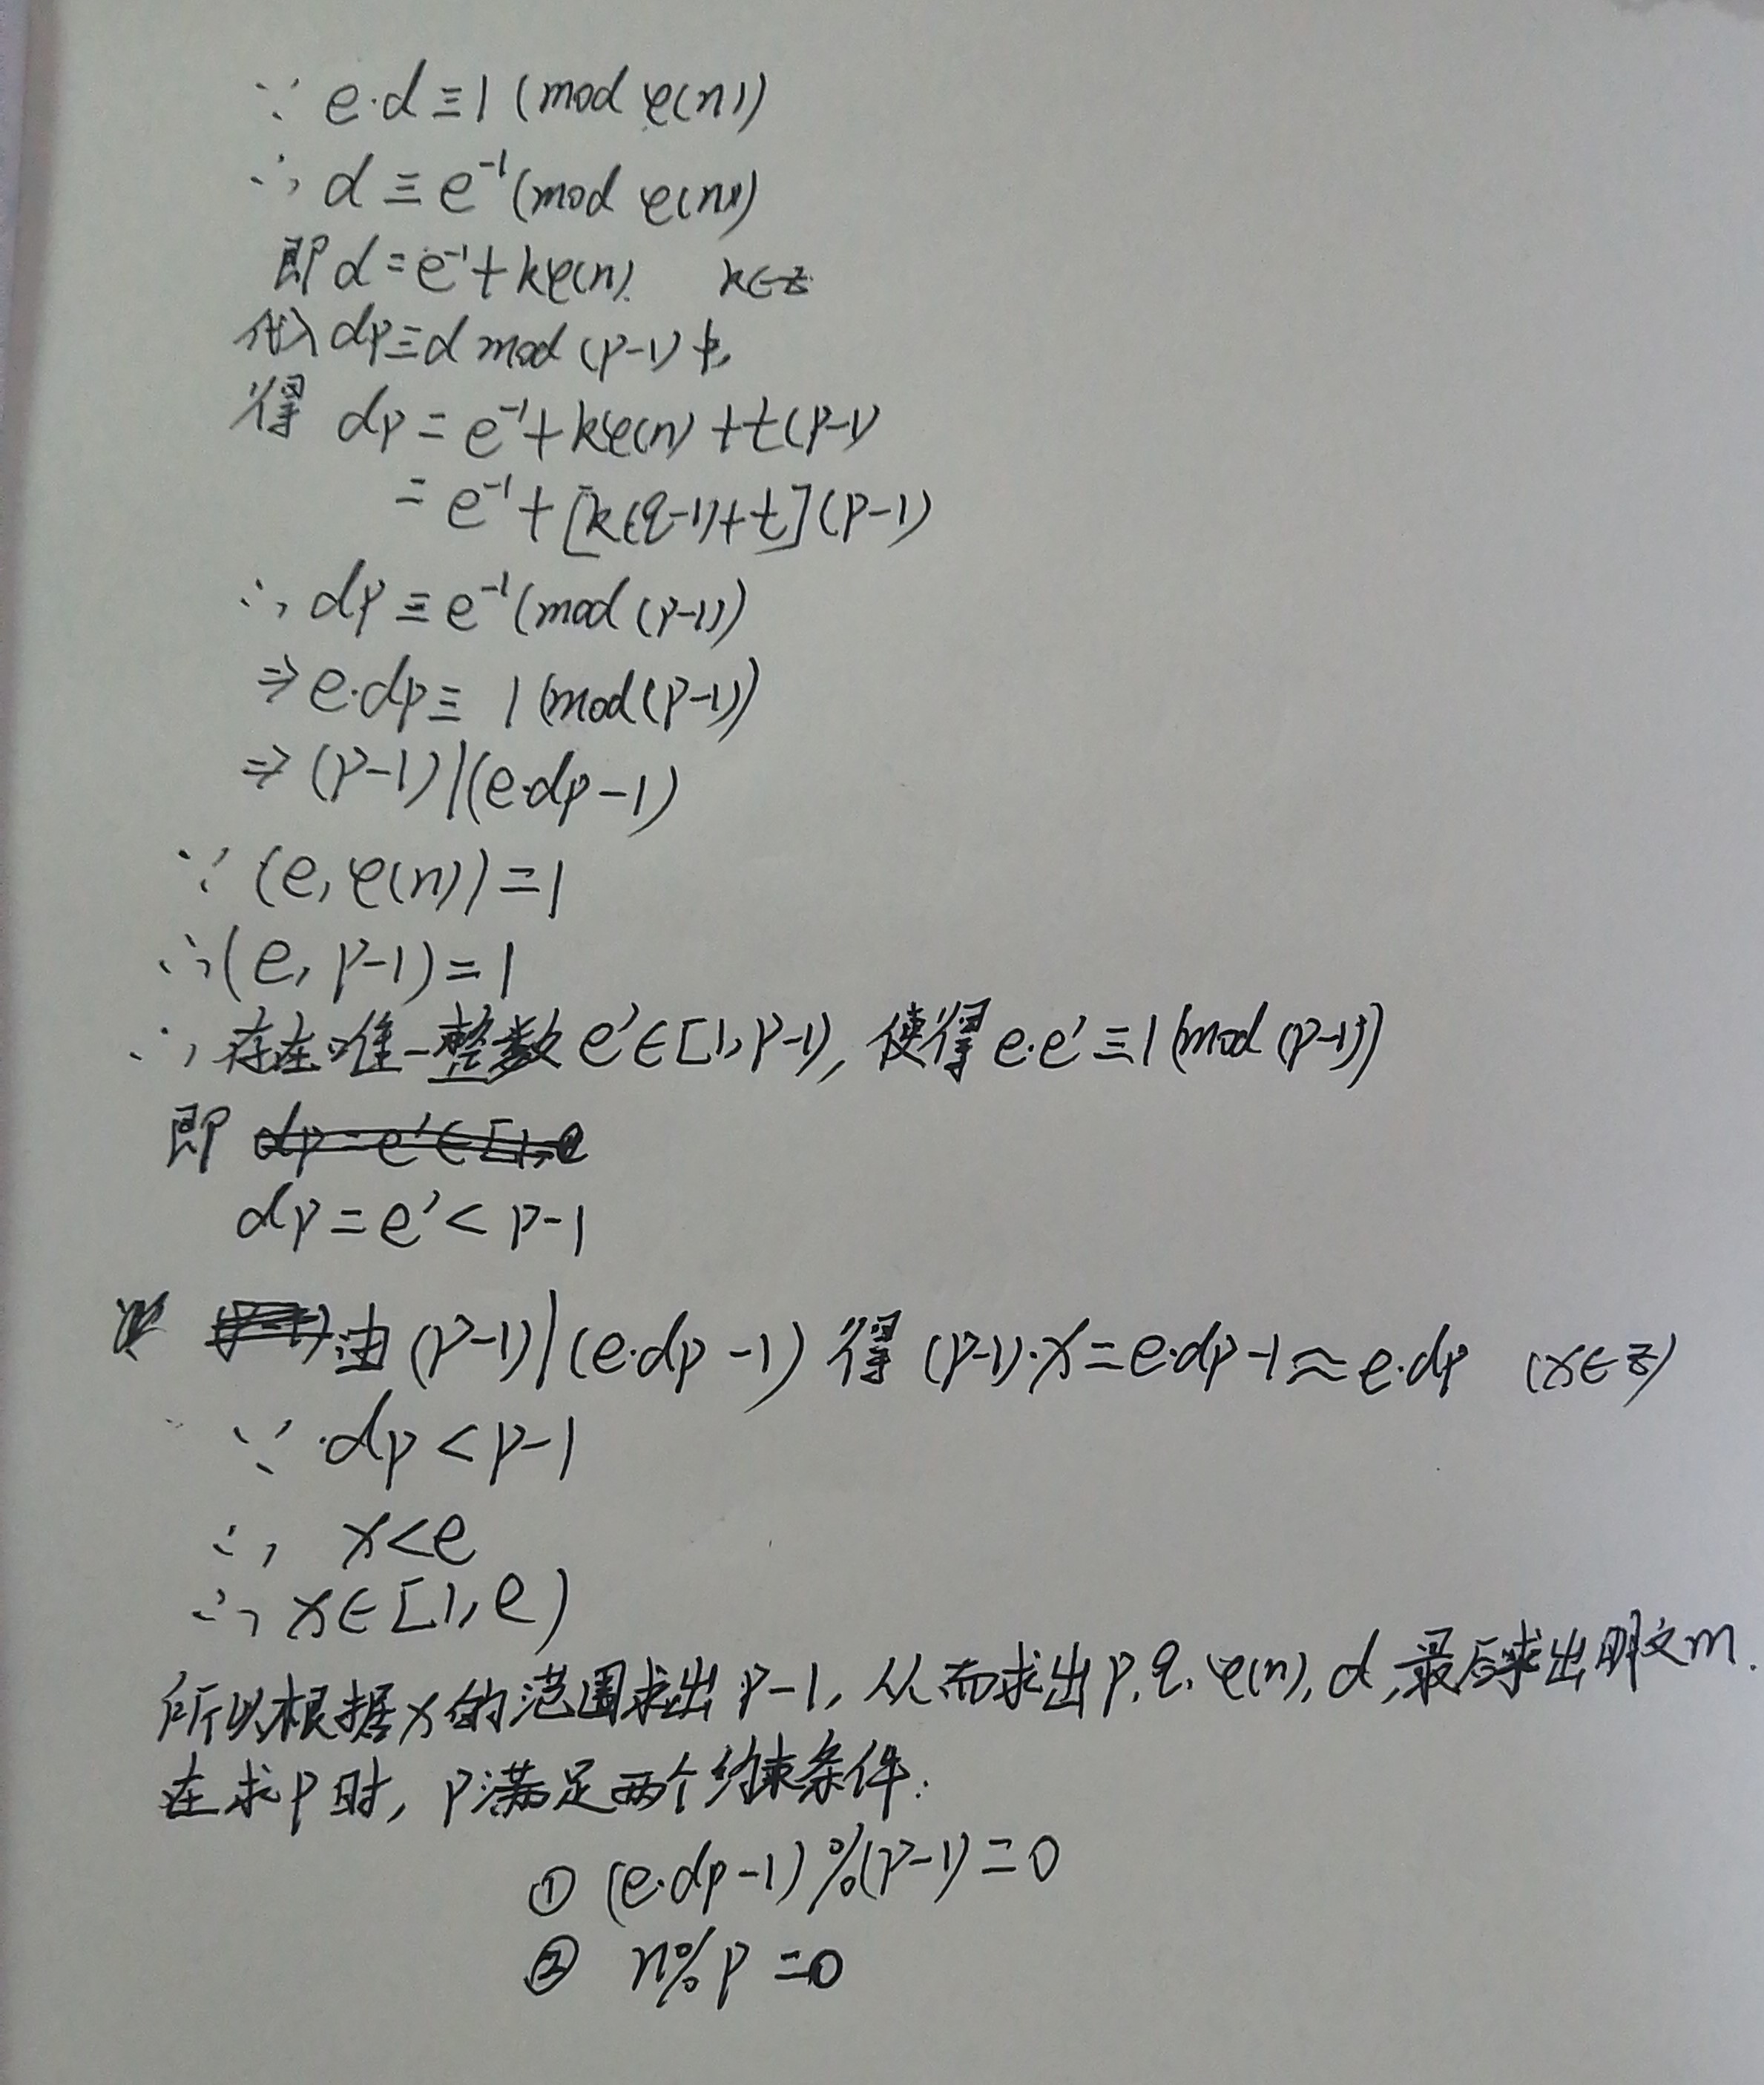 ∵ e·d≡1 (mod φ(n))
∴ d≡e⁻¹(mod φ(n))
即 d=e⁻¹+kφ(n). k∈Z
代入 dp≡d mod (p-1) 中,
得 dp=e⁻¹+kφ(n)+t(p-1)
=e⁻¹+[k(q-1)+t](p-1)
∴ dp≡e⁻¹(mod (p-1))
⇒ e·dp≡1 (mod(p-1))
⇒ (p-1)|(e·dp-1)
∵ (e, φ(n))=1
∴ (e, p-1)=1
∴ 存在唯一整数 e'∈[1,p-1), 使得 e·e'≡1(mod (p-1))
即
dp=e'<p-1
由 (p-1)|(e·dp-1) 得 (p-1)·x=e·dp-1≈e·dp (x∈Z)
∵ dp<p-1
∴ x<e
∴ x∈[1,e)
所以根据x的范围求出 p-1, 从而求出 p,q,φ(n),d,最后求出明文m.
在求p时, p满足两个约束条件:
① (e·dp-1)%(p-1)=0
② n%p=0